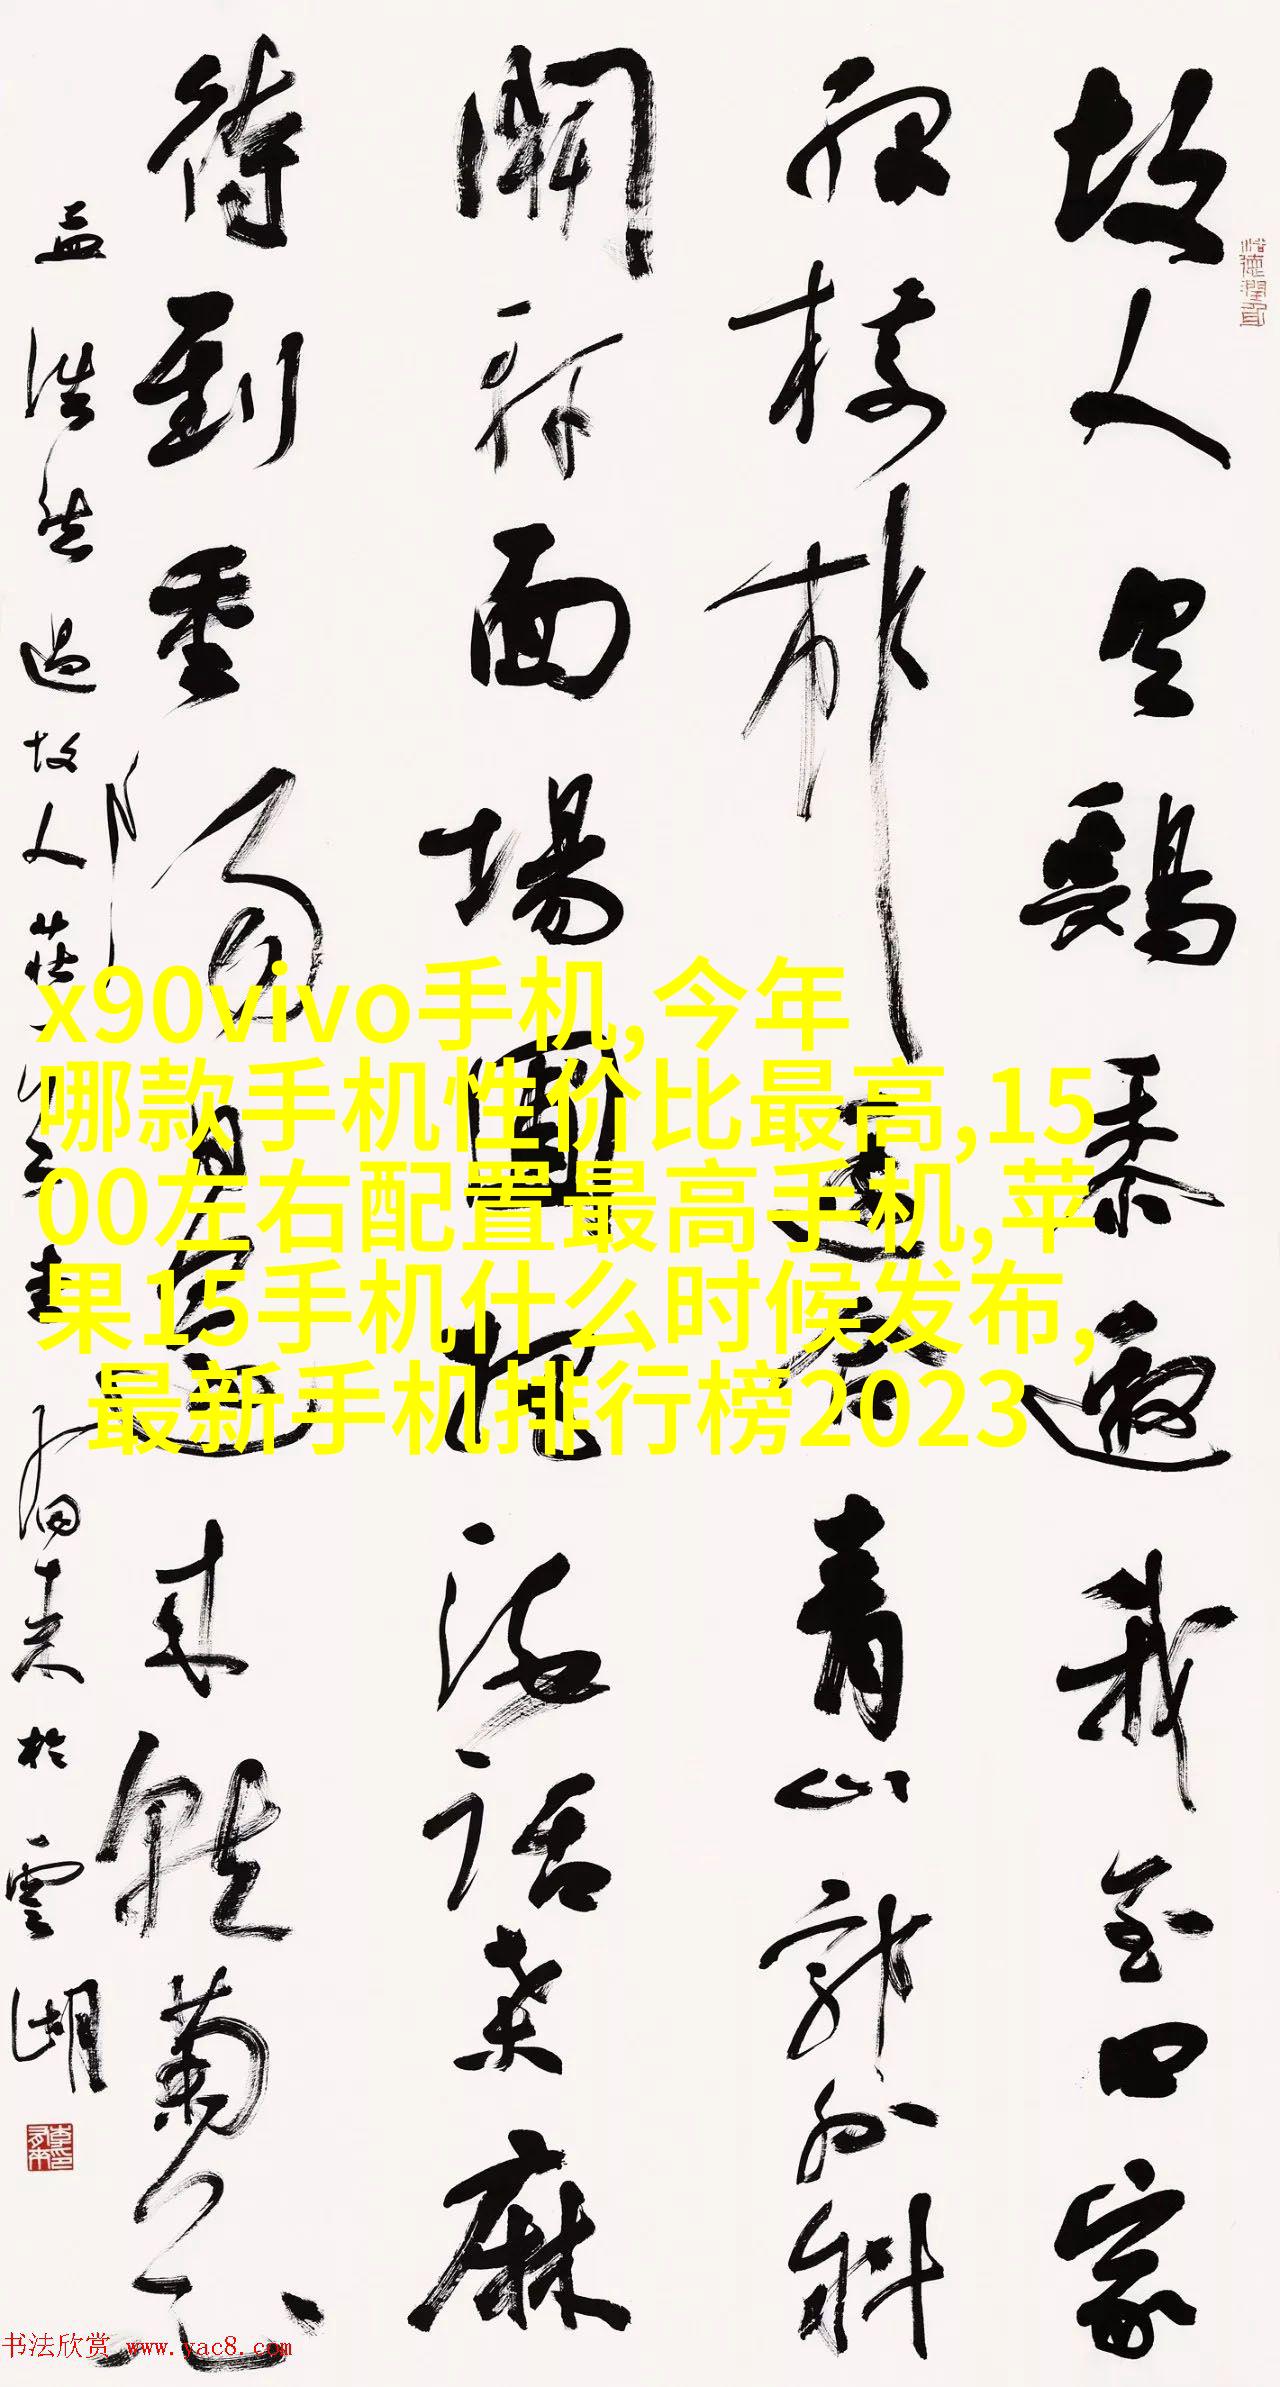 故人具鸡黍邀我至田家
绿树村边合青山郭外斜
開轩面場圃把酒话桑麻
待到重陽日還来就菊花
孟浩然過故人莊
有来於雲湖
x90vivo手机,今年
哪款手机性价比最高,15
00左右配置最高手机,苹
果15手机什么时候发布,
最新手机排行榜2023
书法欣赏 www.yac8.com